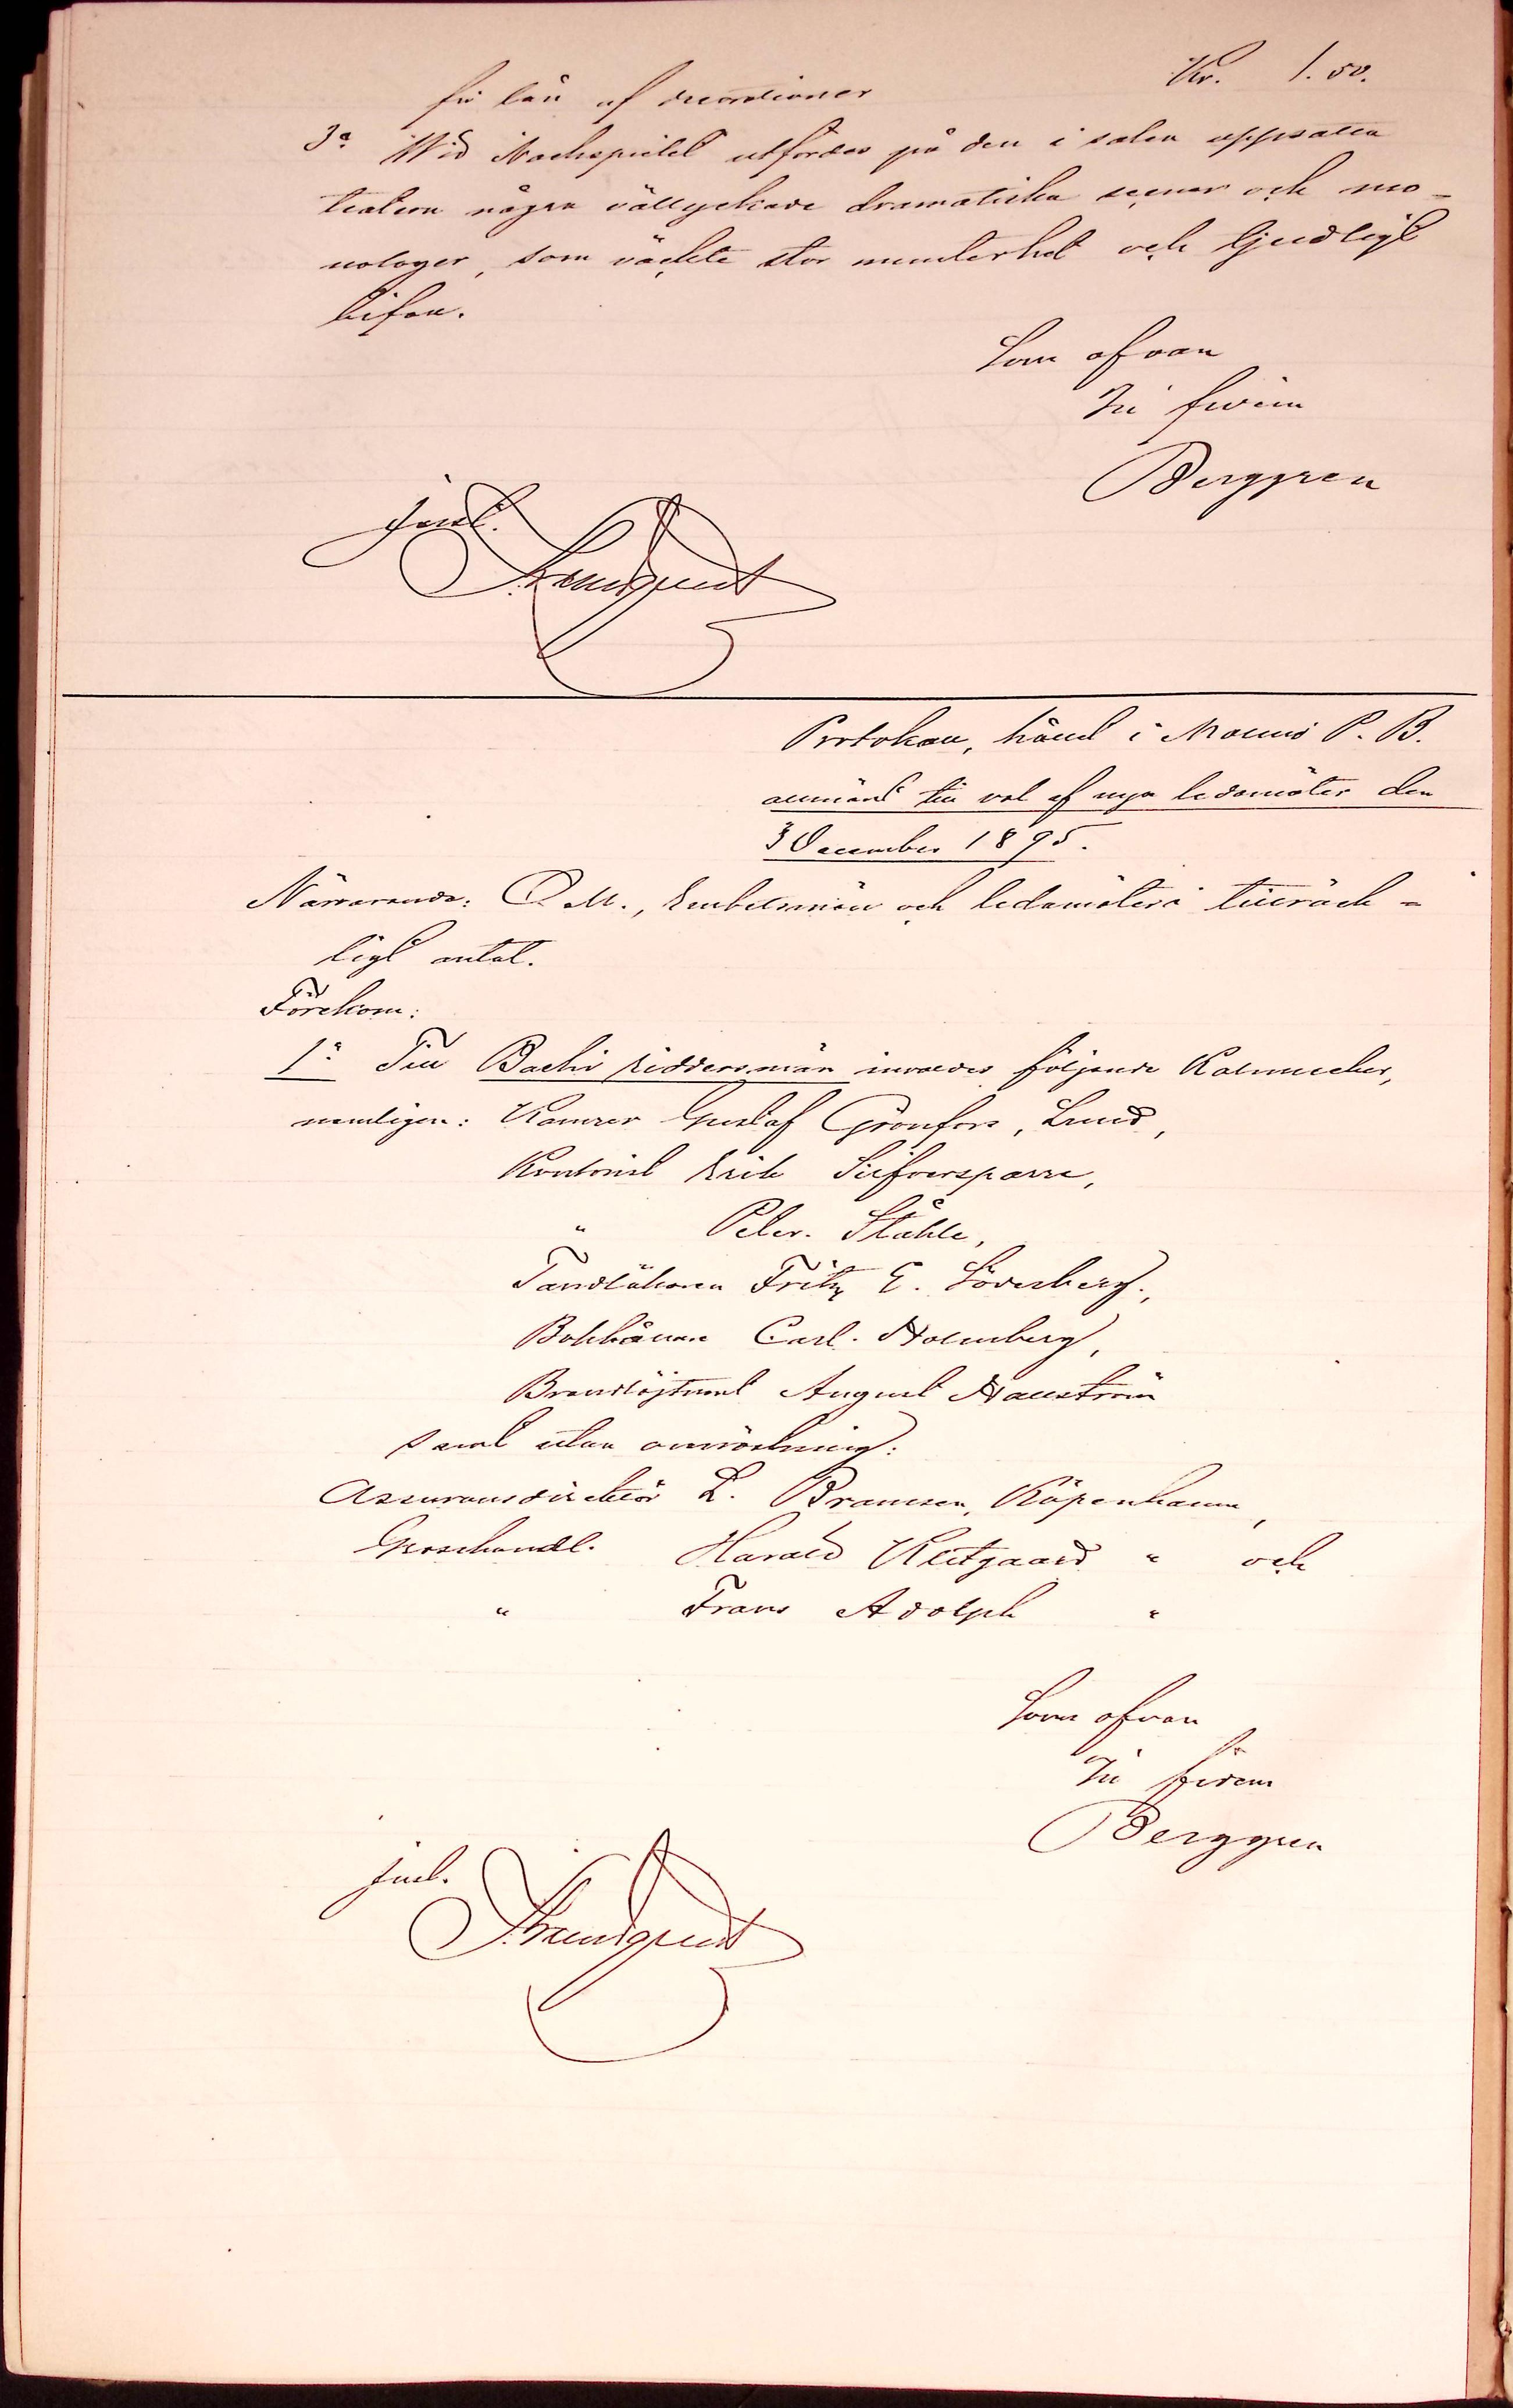 för lån af decorationer Kr. 1.50.
3º. Wid Nachspielet utfördes på den i salen uppsatta
teatern några vällyckade dramatiska scener och mo-
nologer, som väckte stor munterhet och ljudligt
bifall.
Som ofvan
In fidem
Berggren
just.
Protokoll, hållet i Malmö P. B.
allmänt till val af nya ledamöter den
3 December 1895.
Närvarande: O. M., Embetsmän och ledamöter i tillräck-
ligt antal.
Förekom:
1º Till Bachi riddersmän invaldes följande Kalmucker,
nemligen: Kamrer Gustaf Grönfors, Lund,
Kontorist Erik Silfversparre,
" Peter Ståhle,
Tandläkaren Fritz E. Söderberg,
Bokhållare Carl Holmberg,
Brandlöjtnant August Hallström
samt utan omröstning:
Assuransdirektör L. Bramsen, Köpenhamn,
Grosshandl. Harald Klitgaard " och
" Frans Adolph "
Som ofvan
In fidem
Berggren
just.